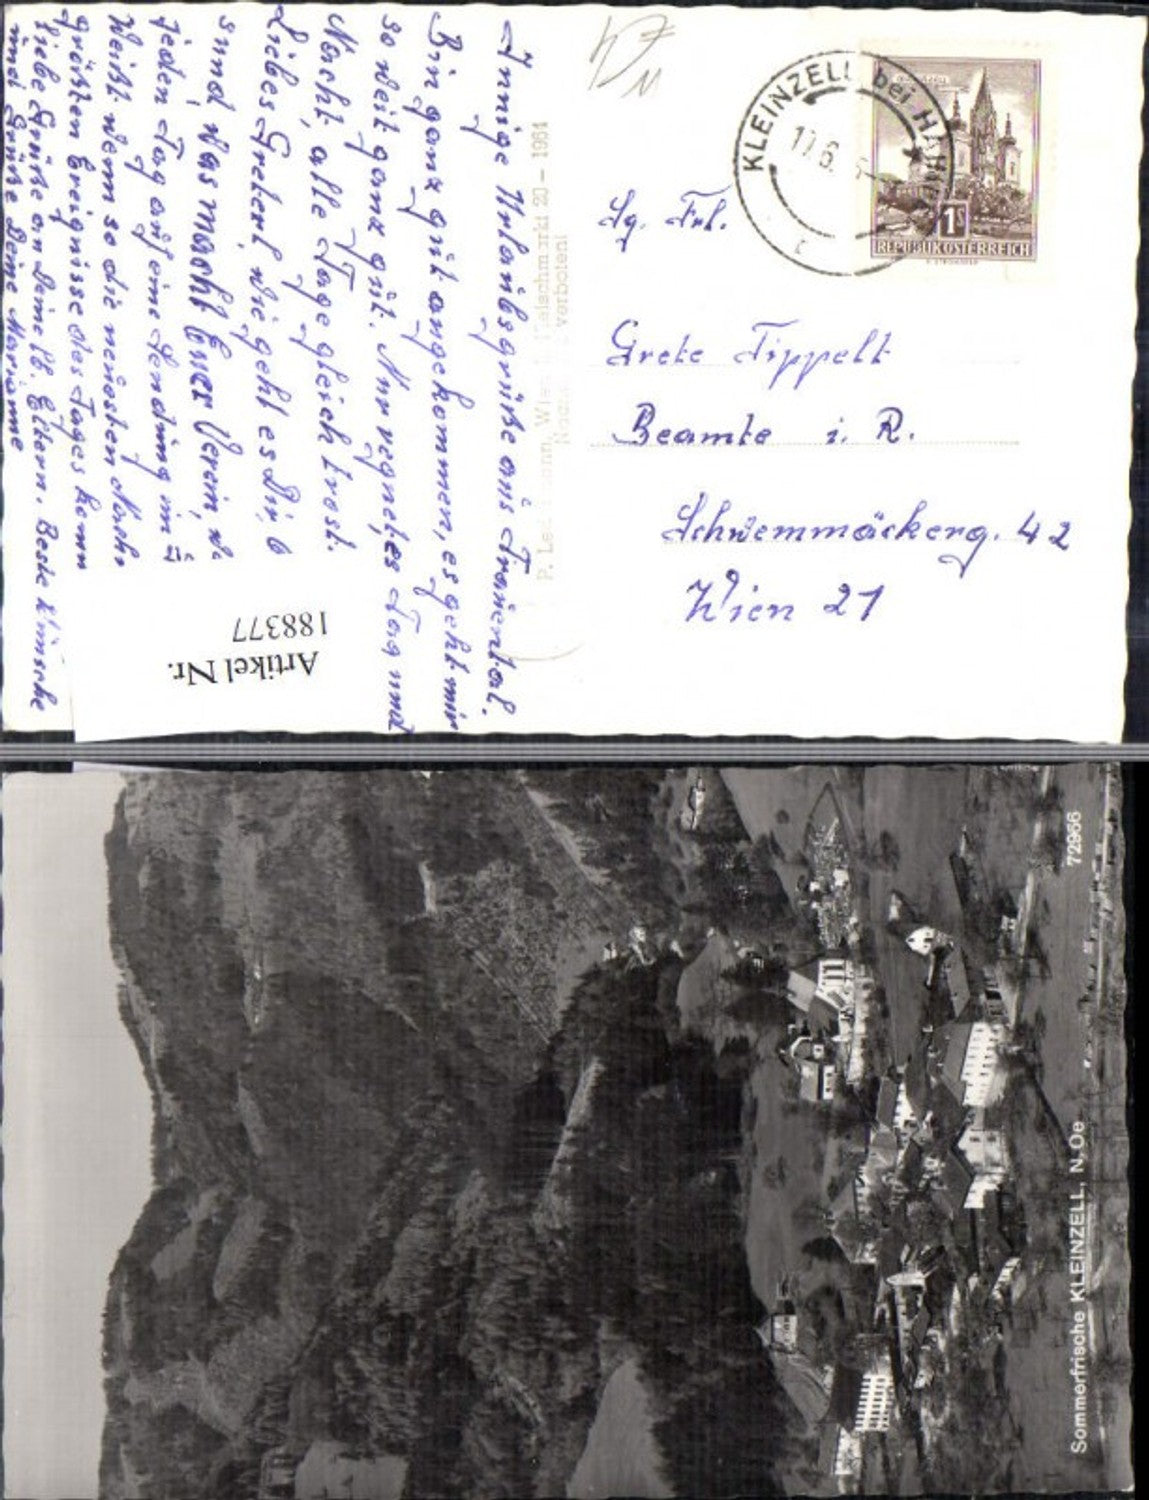 Innige Urlaubsgrüße aus Traisental.
Bin ganz gut angekommen, es geht mir
so weit ganz gut. Nur regnet es Tag und
Nacht, alle Tage gleich trost.
Liebes Greterl wie geht es Dir, b
sund, was macht Euer Verein, w.
jeden Tag auf eine Sendung im
Weißt wenn so die neuesten Nachr
größten Ereignisse des Tages komm
Liebe Grüße an Deine lb. Eltern. Beste Wünsche
und Grüße Deine Marianne
Artikel Nr.
188377
P. Wien Fleischmarkt 20 – 1961
verboten!
KLEINZELL bei
17.6.
1S
REPUBLIK ÖSTERREICH
Sg. Frl.
Grete Tippelt
Beamte i. R.
Schwemmäckerg. 42
Wien 21
Sommerfrische KLEINZELL, N.Oe
72966